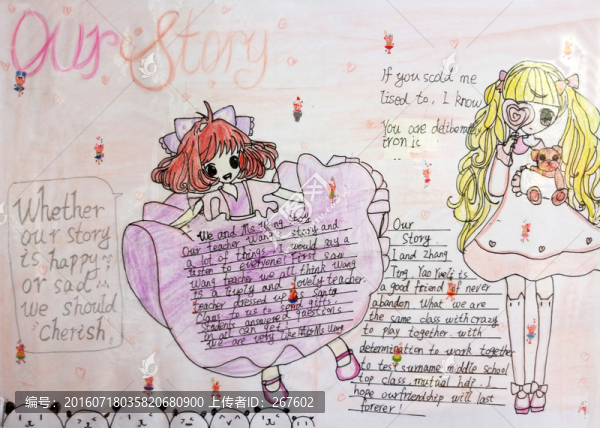 Our Story
If you scold me
lised to, I know
You are deliberate
tron is
Whether
our story
is happy
or sad
we should
cherish
We and Ms Wang
Our teacher Wang story and
a lot of things I would say a
listen to everyone! First saw
Wang teacher we all think Wang
is lively and lovely teacher.
teacher dressed up as Santa
Claus to us to send gifts.
Students answered questions
in all can get!
we are very like Ms Wang
Our
Story
I and Zhang
Ting Yao Yueli is
a good friend of never
abandon. What we are
the same class with crazy
to play together. with
determination to work together
to test surname middle school
top class. mutual help. I
hope ourfriendship will last
forerer!
编号:20160718035820680900 上传者ID:267602